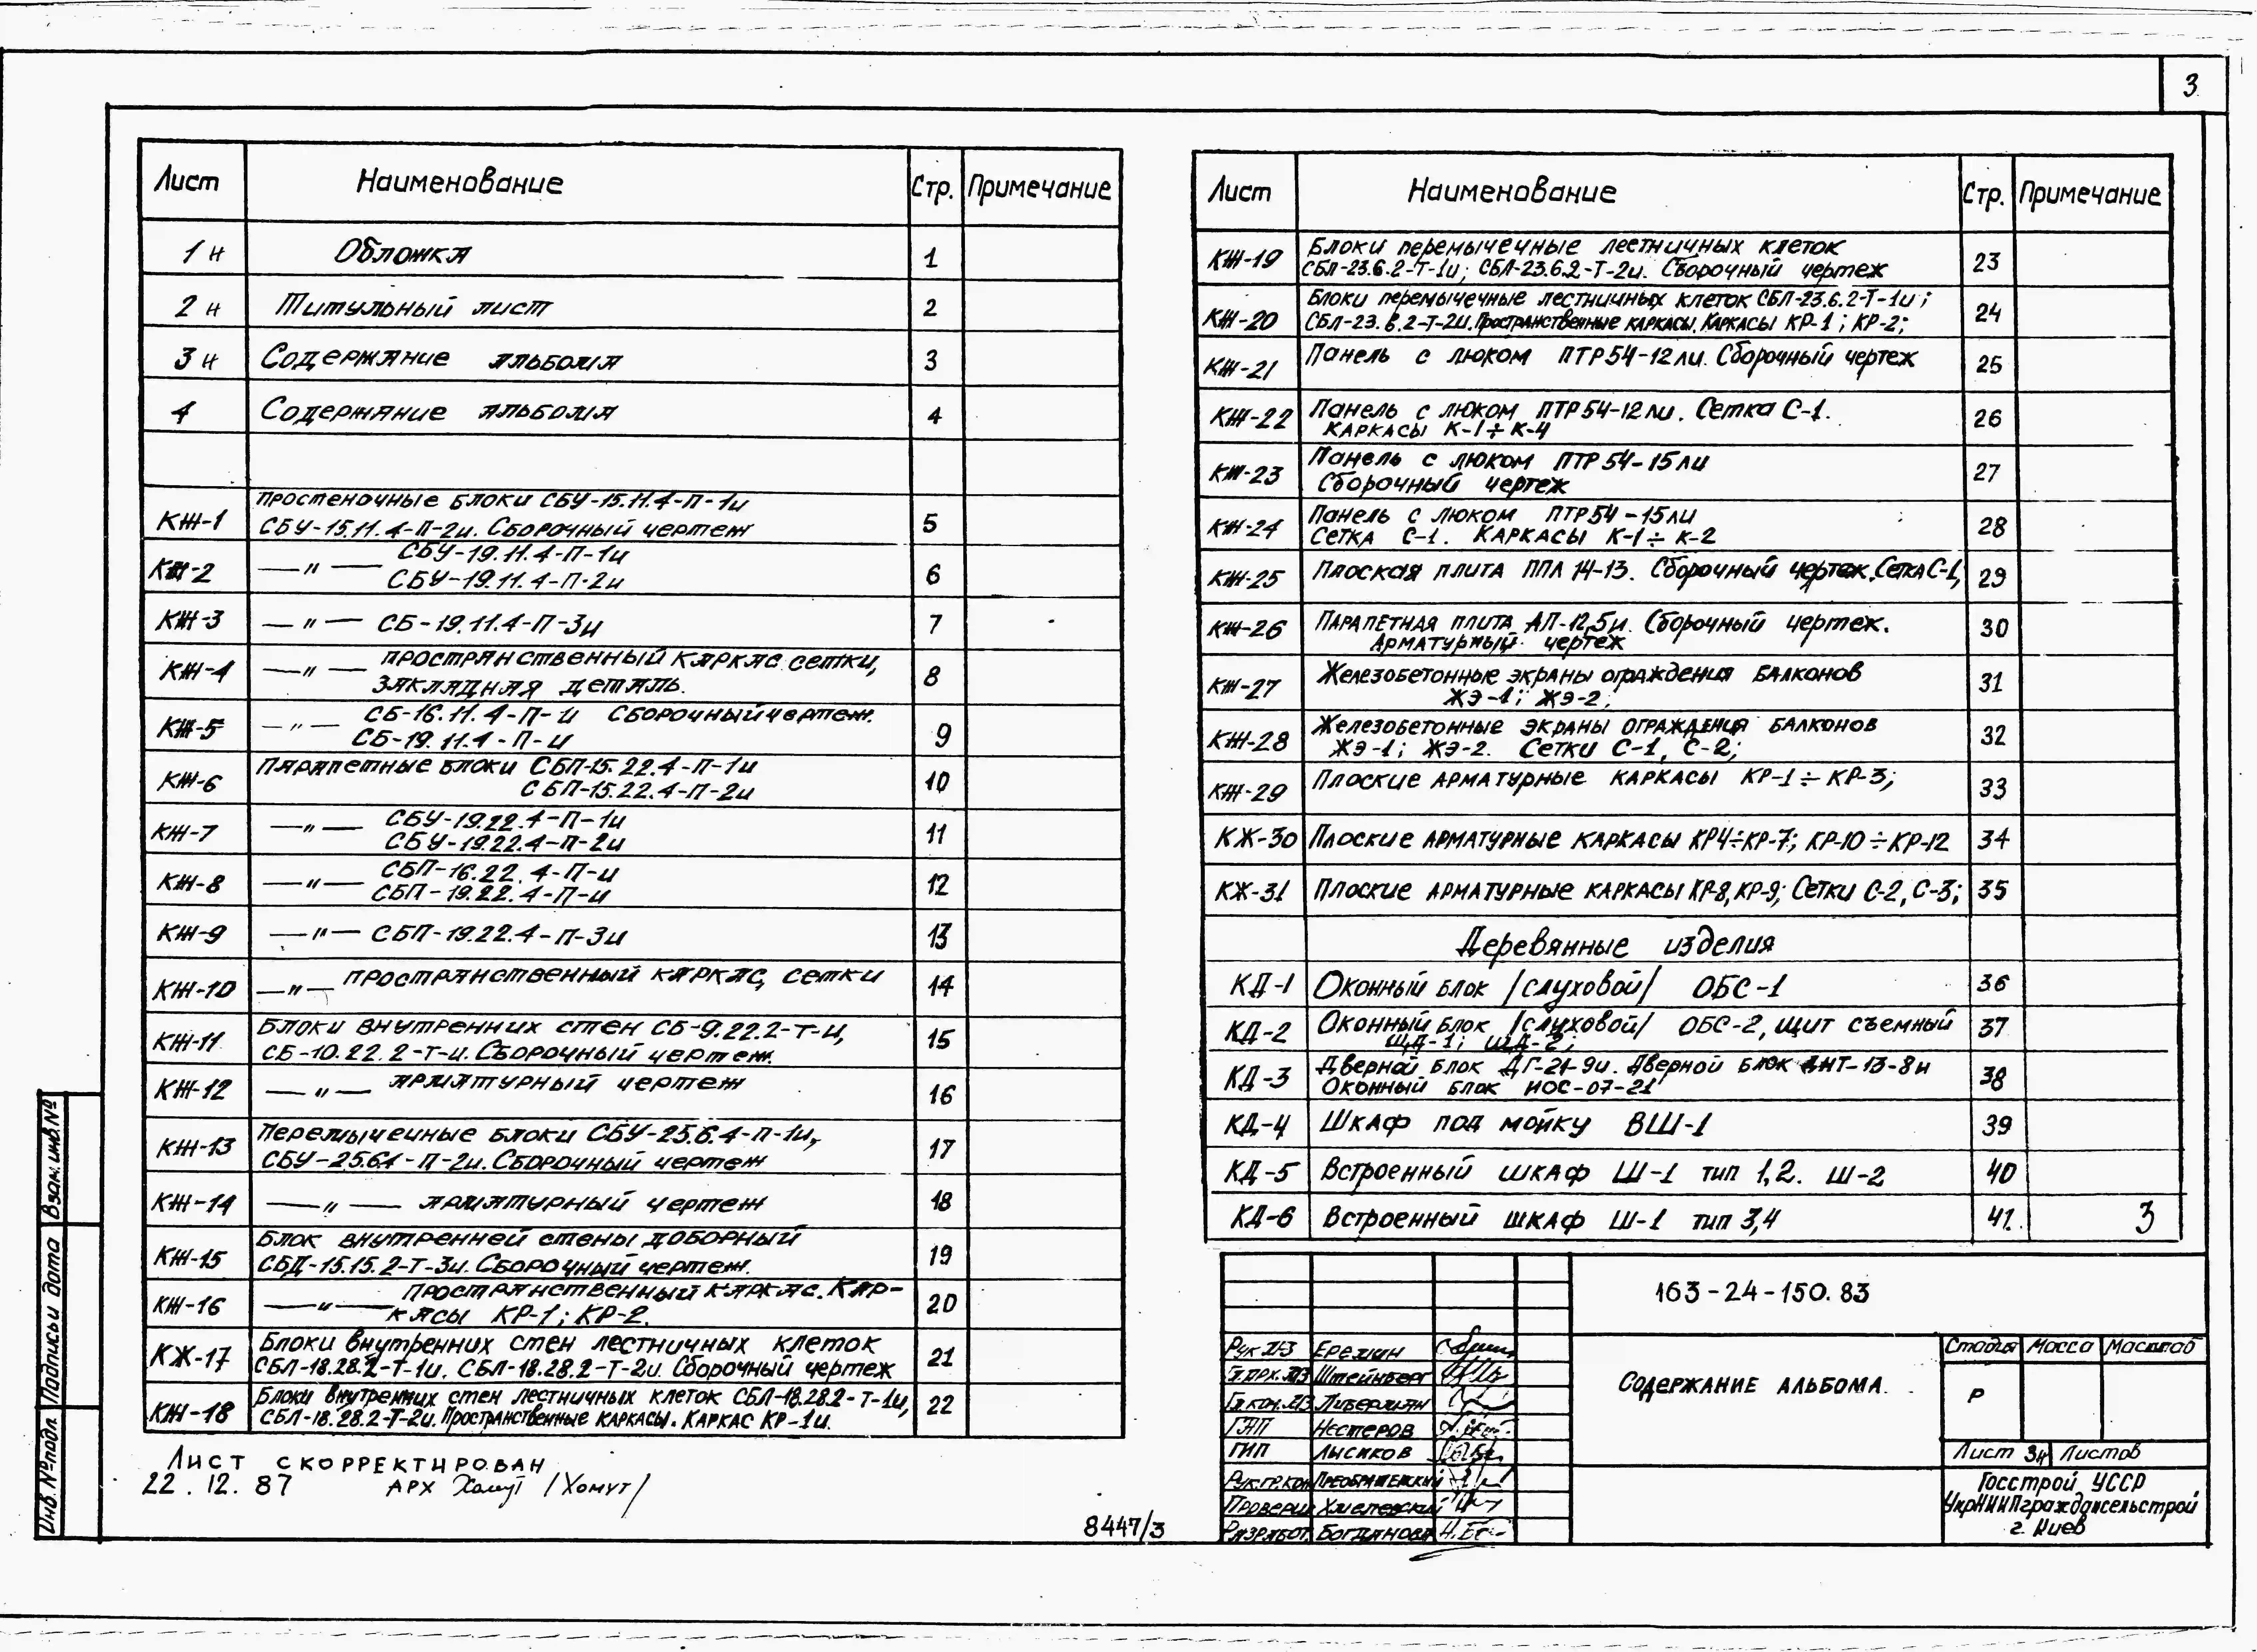 3
Лист Наименование Стр. Примечание
1н Обложка 1
2н Титульный лист 2
3н Содержание альбома 3
4 Содержание альбома 4
Простеночные блоки СБУ-15.11.4-П-1и
КЖ-1 СБУ-15.11.4-П-2и. Сборочный чертеж 5
СБУ-19.11.4-П-1и
КЖ-2 —"— СБУ-19.11.4-П-2и 6
КЖ-3 —"— СБ-19.11.4-П-3и 7
КЖ-4 —"— пространственный каркас, сетки, 8
закладная деталь.
КЖ-5 —"— СБ-16.11.4-П-и Сборочный чертеж. 9
СБ-19.11.4-П-и
Парапетные блоки СБП-15.22.4-П-1и
КЖ-6 СБП-15.22.4-П-2и 10
КЖ-7 —"— СБУ-19.22.4-П-1и 11
СБУ-19.22.4-П-2и
КЖ-8 —"— СБП-16.22.4-П-и 12
СБП-19.22.4-П-и
КЖ-9 —"— СБП-19.22.4-П-3и 13
КЖ-10 —"— пространственный каркас, сетки 14
Блоки внутренних стен СБ-9.22.2-Т-и,
КЖ-11 СБ-10.22.2-Т-и. Сборочный чертеж. 15
КЖ-12 —"— арматурный чертеж 16
КЖ-13 Перемычечные блоки СБУ-25.6.4-П-1и, 17
СБУ-25.6.4-П-2и. Сборочный чертеж
КЖ-14 —"— арматурный чертеж 18
Блок внутренней стены доборный
КЖ-15 СБД-15.15.2-Т-3и. Сборочный чертеж. 19
КЖ-16 —"— пространственный каркас. Кар- 20
касы КР-1; КР-2.
Блоки внутренних стен лестничных клеток
КЖ-17 СБЛ-18.28.2-Т-1и. СБЛ-18.28.2-Т-2и. Сборочный чертеж 21
Блоки внутренних стен лестничных клеток СБЛ-18.28.2-Т-1и,
КЖ-18 СБЛ-18.28.2-Т-2и. Пространственные каркасы. Каркас КР-1и. 22
Лист скорректирован
22.12.87 арх /Хомут/
8447/3
Лист Наименование Стр. Примечание
Блоки перемычечные лестничных клеток
КЖ-19 СБЛ-23.6.2-Т-1и; СБЛ-23.6.2-Т-2и. Сборочный чертеж 23
Блоки перемычечные лестничных клеток СБЛ-23.6.2-Т-1и;
КЖ-20 СБЛ-23.6.2-Т-2и. Пространственные каркасы. Каркасы КР-1; КР-2; 24
КЖ-21 Панель с люком ПТР54-12ли. Сборочный чертеж 25
КЖ-22 Панель с люком ПТР54-12ли. Сетка С-1. 26
Каркасы К-1÷К-4
КЖ-23 Панель с люком ПТР54-15ли 27
Сборочный чертеж
КЖ-24 Панель с люком ПТР54-15ли 28
Сетка С-1. Каркасы К-1÷К-2
КЖ-25 Плоская плита ППЛ 14-13. Сборочный чертеж, Сетка С-1; 29
КЖ-26 Парапетная плита АП-12,5и. Сборочный чертеж. 30
Арматурный чертеж
КЖ-27 Железобетонные экраны ограждения балконов 31
ЖЭ-1; ЖЭ-2;
КЖ-28 Железобетонные экраны ограждения балконов 32
ЖЭ-1; ЖЭ-2. Сетки С-1, С-2;
КЖ-29 Плоские арматурные каркасы КР-1÷КР-3; 33
КЖ-30 Плоские арматурные каркасы КР4÷КР-7; КР-10÷КР-12 34
КЖ-31 Плоские арматурные каркасы КР-8, КР-9; Сетки С-2, С-3; 35
Деревянные изделия
КД-1 Оконный блок /слуховой/ ОБС-1 36
КД-2 Оконный блок /слуховой/ ОБС-2, щит съемный 37
ЩД-1; ЩД-2;
КД-3 Дверной блок ДГ-21-9и. Дверной блок ДНТ-13-8и 38
Оконный блок НОС-07-21
КД-4 Шкаф под мойку ВШ-1 39
КД-5 Встроенный шкаф Ш-1 тип 1,2. Ш-2 40
КД-6 Встроенный шкаф Ш-1 тип 3,4 41. 3
163-24-150.83
Содержание альбома.
Стадия Масса Масштаб
Р
Лист 3н Листов
Госстрой УССР
УкрНИИПграждансельстрой
г. Киев
Рук. Еремин
Штейнберг
Либерман
ГАП Нестеров
ГИП Лысиков
Рук.гр.кон Преображенский
Проверил Хмелевский
Разработ. Богданова
Инв.№подл. Подпись и дата Взам.инв.№